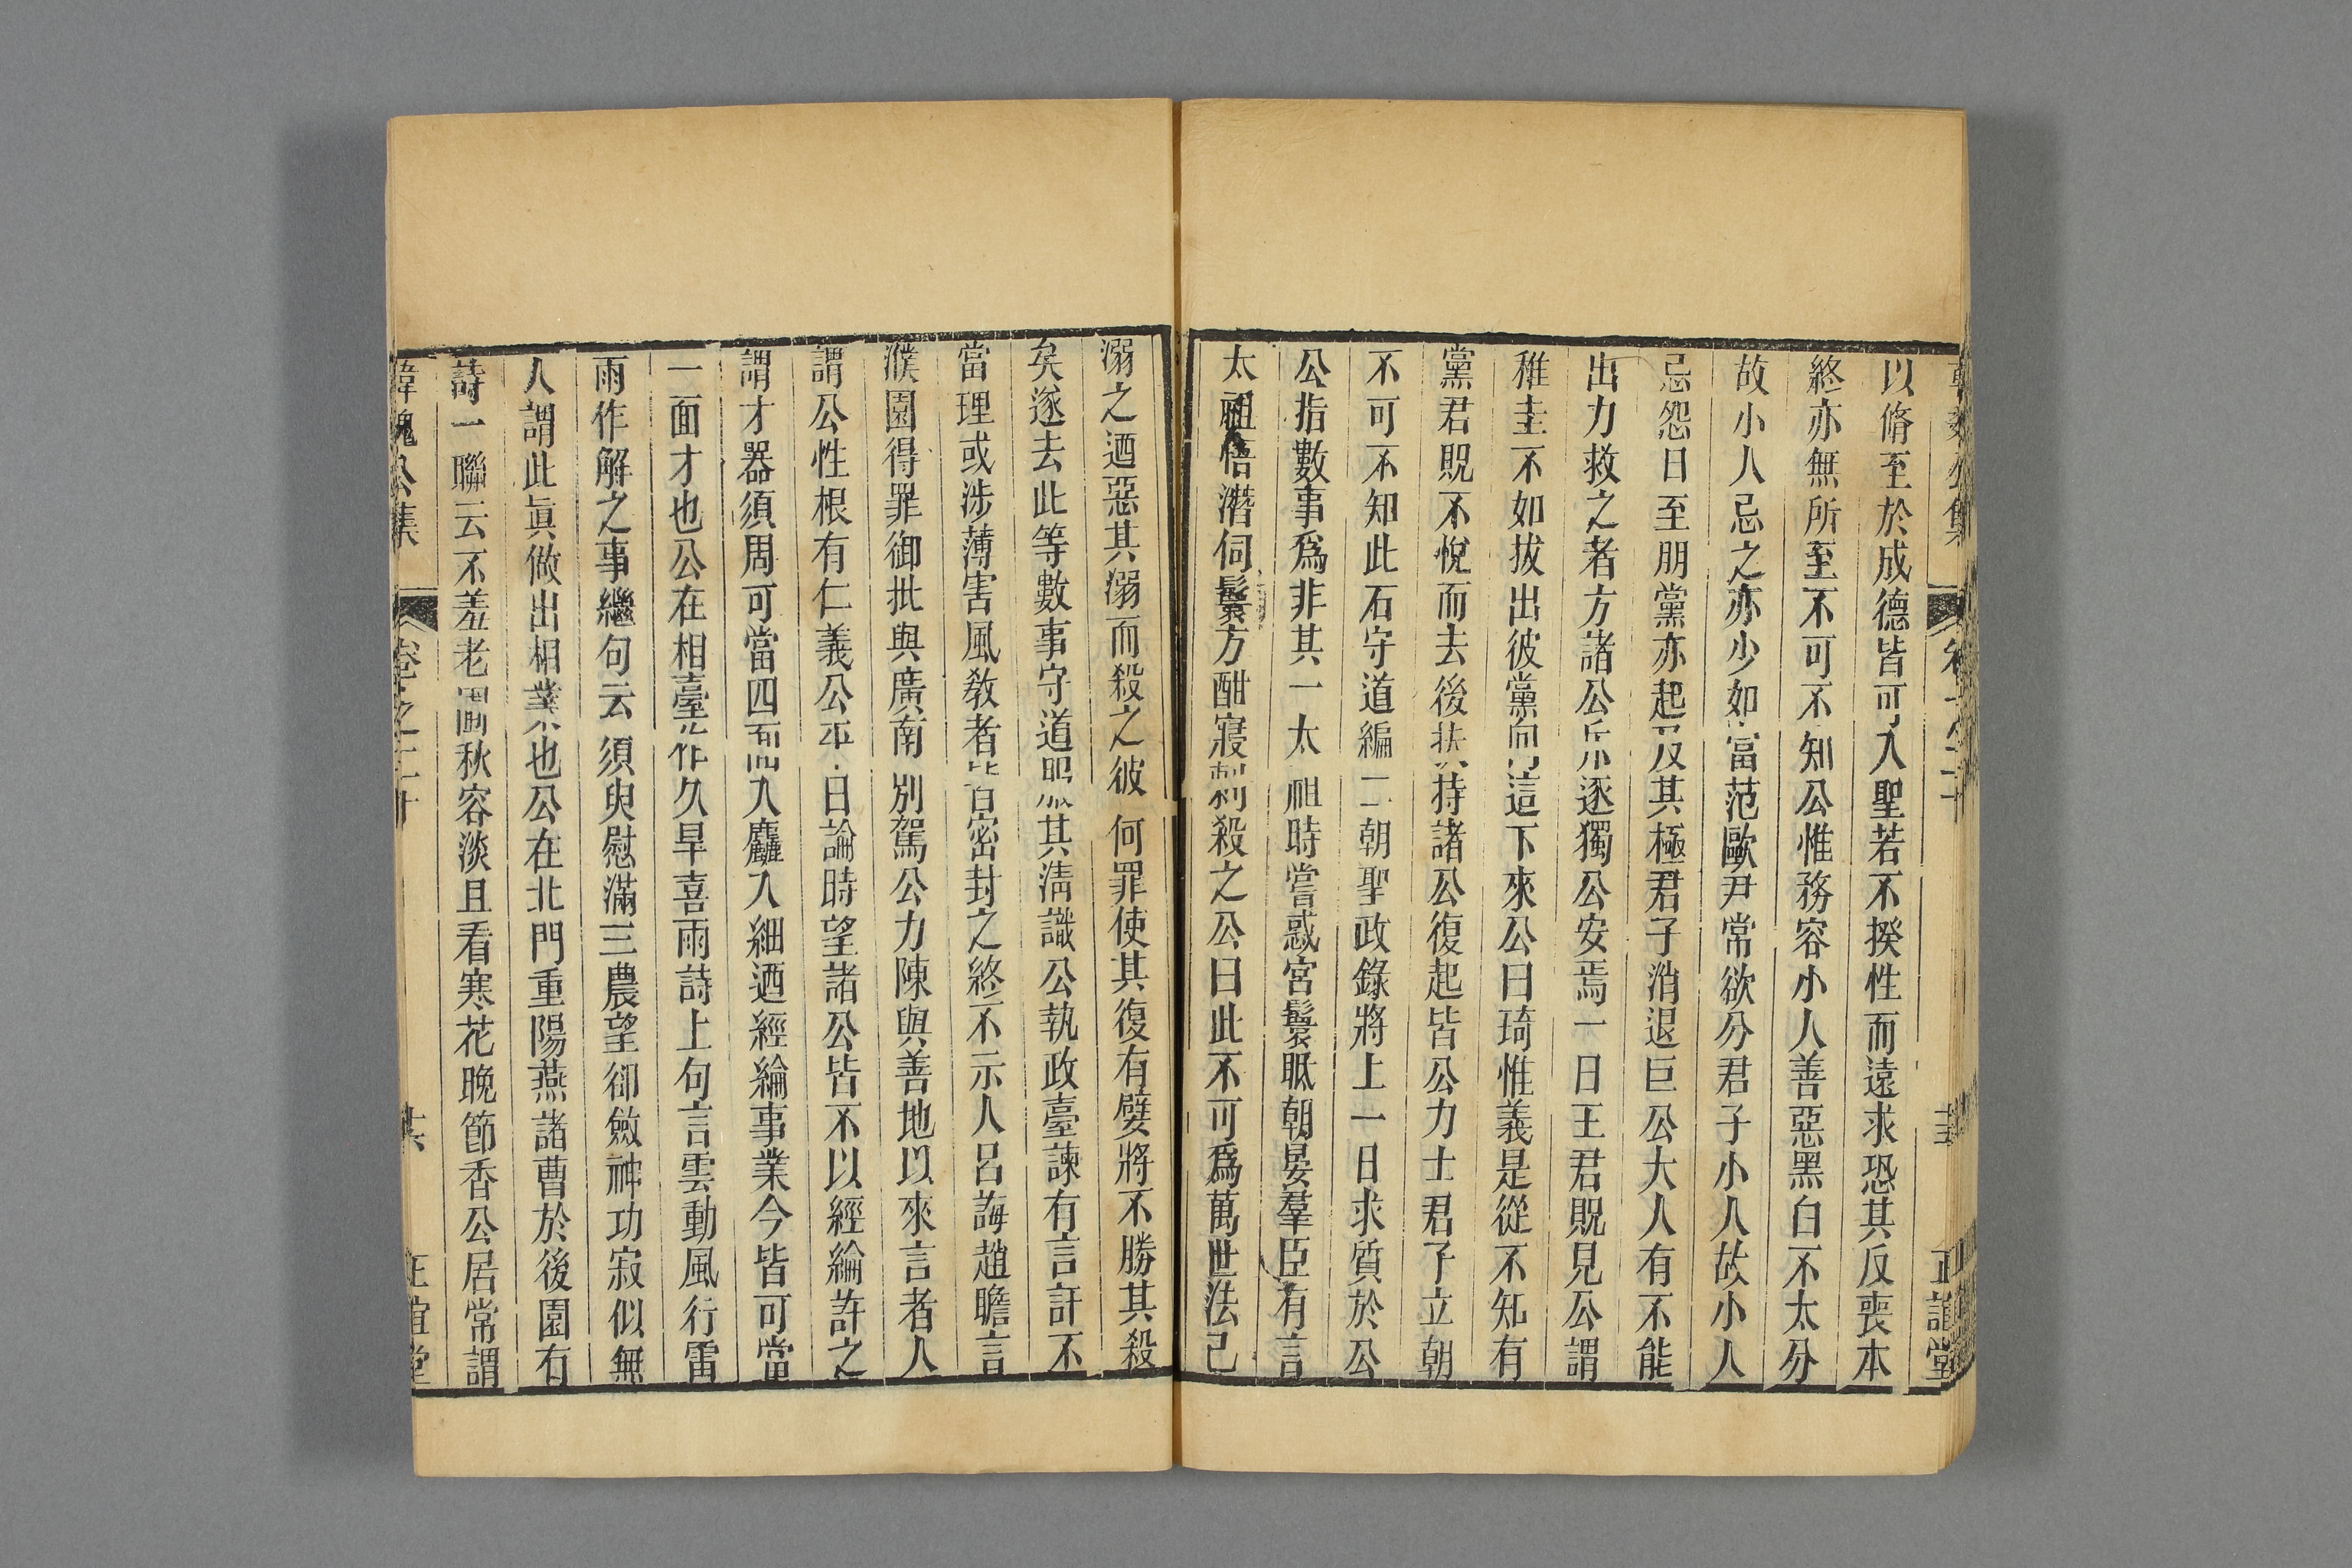 韓魏公集 卷之二十 正誼堂
以脩至於成德皆可入聖若不揆性而遠求恐其反喪本
終亦無所至不可不知公惟務容小人善惡黑白不太分
故小人忌之亦少如富范歐尹常欲分君子小人故小人
忌怨日至朋黨亦起及其極君子消退巨公大人有不能
出力救之者方諸公斥逐獨公安焉一日王君貺見公謂
稚圭不如拔出彼黨向這下來公曰琦惟義是從不知有
黨君貺不悅而去後扶持諸公復起皆公力士君子立朝
不可不知此石守道編三朝聖政錄將上一日求質於公
公指數事爲非其一太祖時嘗惑宮鬟眡朝晏羣臣有言
太祖悟潛伺鬟方酣寢刺殺之公曰此不可爲萬世法已
溺之迺惡其溺而殺之彼何罪使其復有嬖將不勝其殺
矣遂去此等數事守道服其淸識公執政臺諫有言訐不
當理或涉薄害風敎者皆密封之終不示人呂誨趙瞻言
濮園得罪御批與廣南別駕公力陳與善地以來言者人
謂公性根有仁義公平日論時望諸公皆不以經綸許之
謂才器須周可當四面入麤入細迺經綸事業今皆可當
一面才也公在相臺作久旱喜雨詩上句言雲動風行雷
雨作解之事繼句云須臾慰滿三農望卻斂神功寂似無
人謂此眞做出相業也公在北門重陽燕諸曹於後園有
詩一聯云不羞老圃秋容淡且看寒花晚節香公居常謂
韓魏公集 卷之二十 共 正誼堂